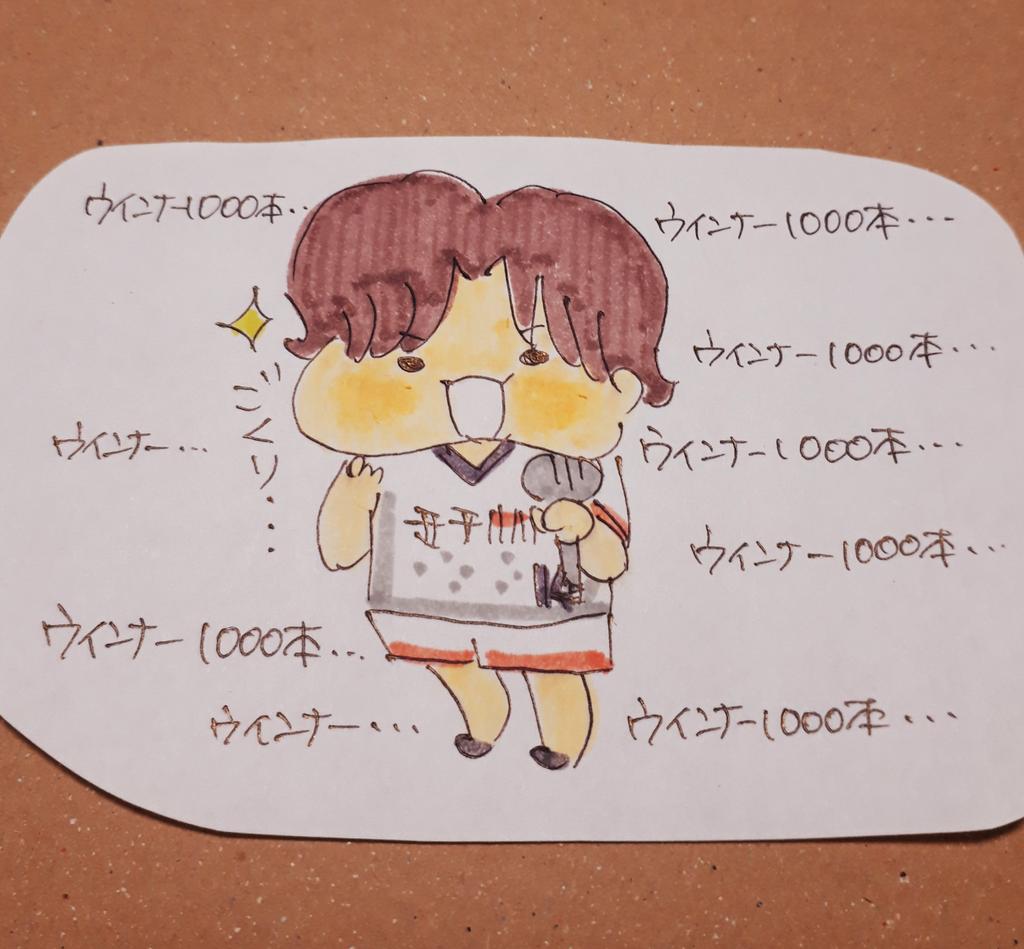 ウインナー1000本‥
ウインナー1000本・・・
ウインナー1000本・・・
ウインナー・・・
ごくり・・・
ウインナー1000本・・・
ウインナー1000本・・・
ウインナー1000本・・・
ウインナー・・・
ウインナー1000本・・・